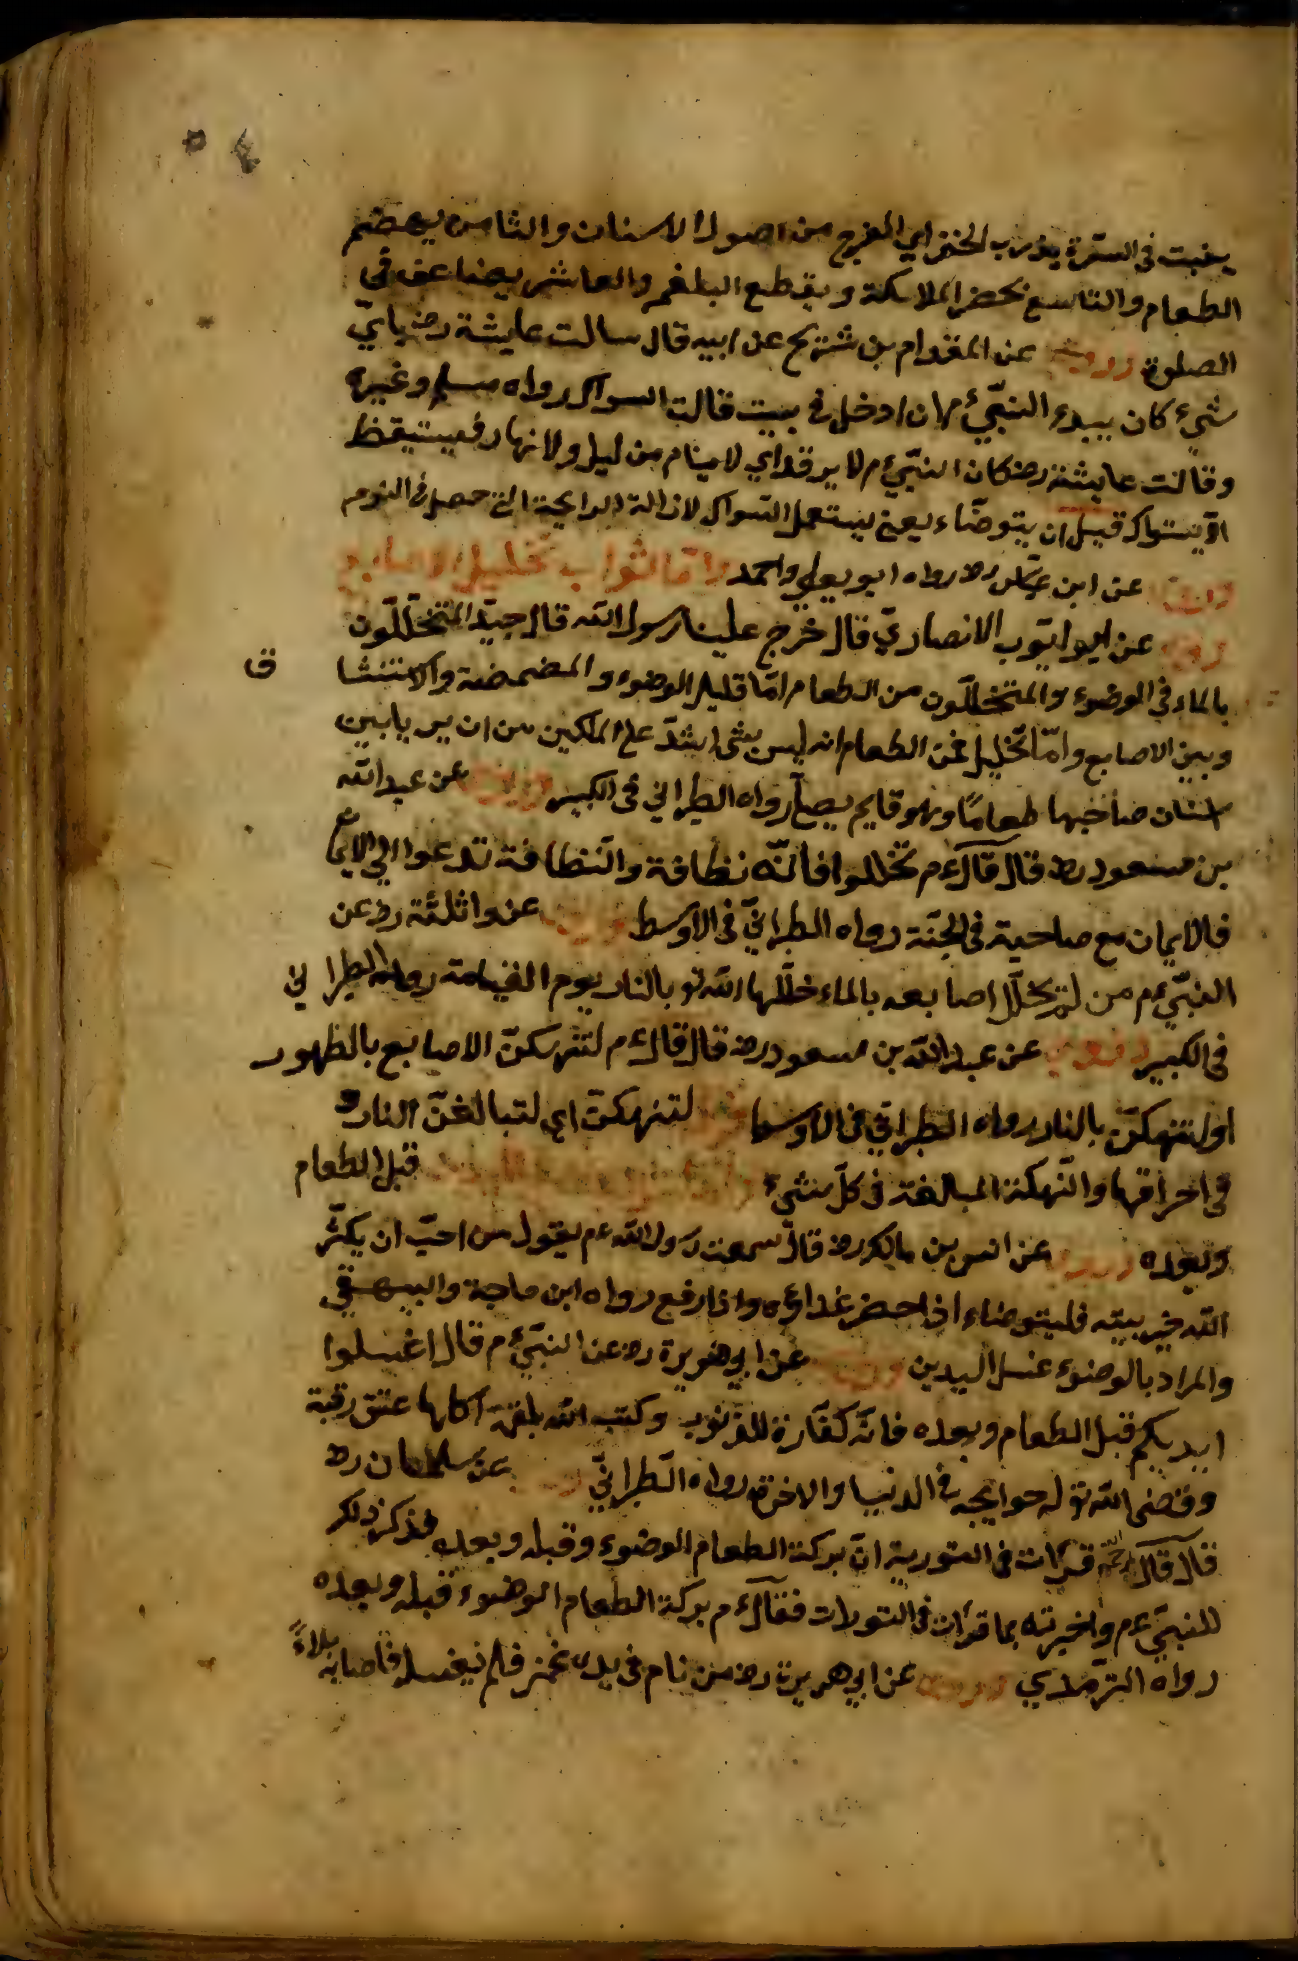 ينبت في السترة يذرب الحنز اي الفرج من اصول الاسنان والثامن يهضم
الطعام والتاسع يحضر الملائكة ويقطع البلغم والعاشر يضاعف في
الصلوة وروينا عن المقدام بن شريح عن ابيه قال سالت عايشة رضه باي
شيء كان يبدء النبيء م ان ادخل في بيت قالت السواك رواه مسلم وغيره
وقالت عايشة رضه كان النبيء م لا يرقد اي لا ينام من ليل ولا نهار فيستيقظ
الا يستواك قبل ان يتوضاء يعني يستعمل السواك لازالة الرايحة التي حصل في النوم
وروينا عن ابن عباس رضه رواه ابو يعلي واحمد واما ثواب تخليل الاصابع
روينا عن ابو ايوب الانصاري قال خرج علينا رسول الله قال حبذ المتخللون
بالماء في الوضوء والمتخللون من الطعام اما قليل الوضوء والمضمضة والاستنشا ق
وبين الاصابع واما تخليل فمن الطعام انه ليس بشئ اشد على الملكين من ان يريا بين
اسنان صاحبها طعاما وهو قايم يصلي رواه الطبراني في الكبير وروينا عن عبد الله
بن مسعود رضه قال قال ءم تخللوا فانه نظافة والنظافة تدعوا الى الايمان
فالايمان مع صاحبه في الجنة رواه الطبراني في الاوسط وروينا عن واثلثة رضه عن
النبيء م من لم يخلل اصابعه بالماء خللها الله تع بالنار يوم القيامة رواه الطبرا ني
في الكبير وروينا عن عبد الله بن مسعود رضه قال قال ءم لتنهكن الاصابع بالطهور
او لتنهكن بالنار رواه الطبراني في الاوسط لتنهكن اي لتبالغن النار و
في احراقها والنهكة المبالغة في كل شيء قبل الطعام
وبعده وروينا عن انس بن مالك رضه قال سمعت رسول الله ءم يقول من احب ان يكثر
الله خير بيته فليتوضاء اذا حضر غداؤه واذا رفع رواه ابن ماجة والبيهقي
والمراد بالوضوء غسل اليدين وروينا عن ابي هريرة رضه عن النبيء م قال اغسلوا
ايديكم قبل الطعام وبعده فانه كفارة للذنوب وكتب الله بلقمة اكلها عتق رقبة
وقضى الله تع له حوايجه في الدنيا والاخرة رواه الطبراني وروينا عن سلمان رضه
قال قال قرات في التورية ان بركة الطعام الوضوء وقبله وبعده فذكر ذلك
للنبيء م واخبرته بما قرات في التورات فقال ءم بركة الطعام الوضوء قبله وبعده
رواه الترمذي وروينا عن ابي هريرة رضه من نام في يده غمز فلم يغسل فاصابه بلاء